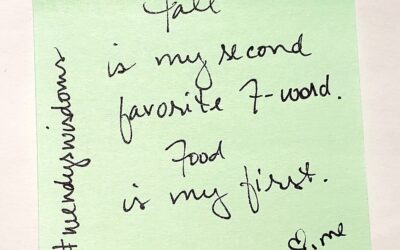 Fall
is my second
favorite F-word.
Food
is my first.
♡, me
#wendyswisdoms